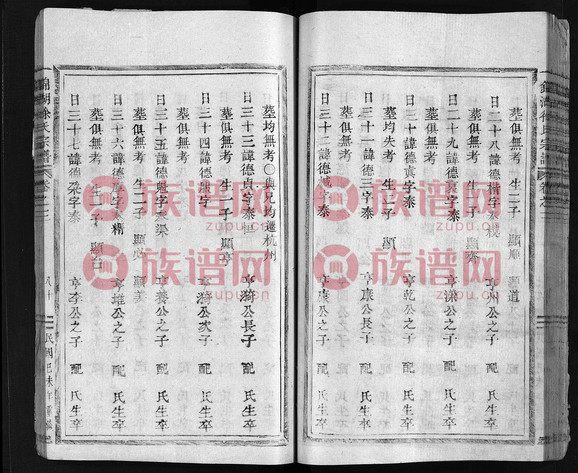 日二十八諱德楷字泰
亨州公之子 配 氏生卒
墓俱無考 生二子 顯順 顯道
日二十九諱德袁字泰
亨乾公之子 配 氏生卒
墓俱無考
日三十諱德真字泰
亨乾公之子 配 氏生卒
墓均失考 生一子 顯
日三十一諱德三字泰
亨康公長子 配 氏生卒
墓俱無考
日三十二諱德誠字泰
亨康公之子 配 氏生卒
墓均無考〇與兄均遷杭州
日三十三諱德貞字泰
亨漪公長子 配 氏生卒
墓俱無考 生一子 顯亨
日三十四諱德謙字
亨漪公次子 配 氏生卒
墓俱無考
日三十五諱德魁字泰榮
亨養公之子 配 氏生卒
墓俱無考 生二子 顯必 顯美
日三十六諱德厚字泰精
亨雄公之子 配 氏生卒
墓俱無考 生一子 顯
日三十七諱德梁字泰
亨李公之子 配 氏生卒
錦湖徐氏宗譜
卷之七
八十
民國己未年重修
族谱网